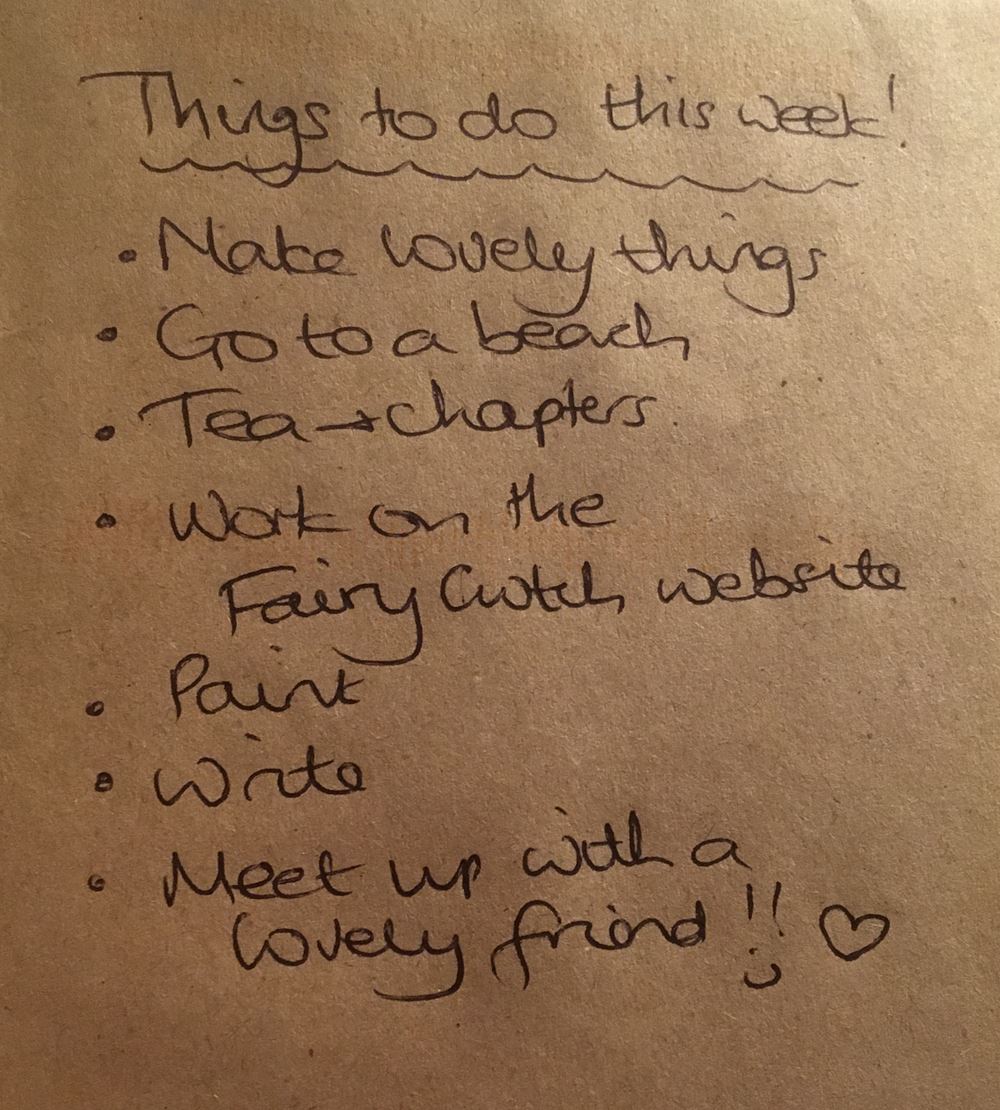 Things to do this week!
• Make lovely things
• Go to a beach
• Tea → chapters.
• Work on the
Fairy Cwtch website
• Paint
• Write
• Meet up with a
lovely friend !! ♡